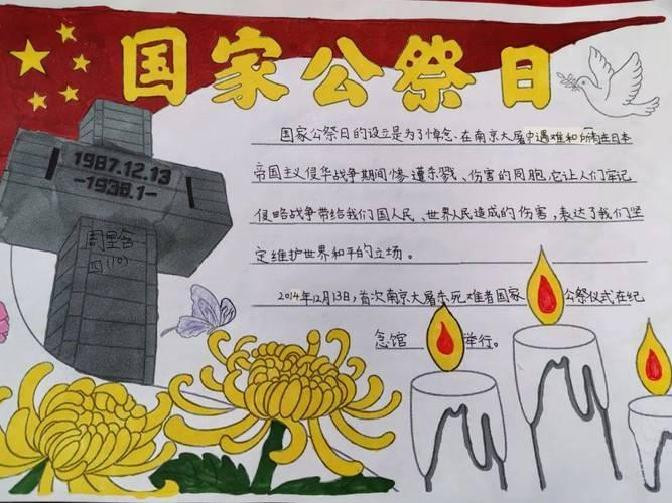 国家公祭日
1987.12.13
-1938.1-
周里含
四(10)
国家公祭日的设立是为了悼念、在南京大屠中遇难和所有在日本
帝国主义侵华战争期间惨遭杀戮、伤害的同胞,它让人们牢记
侵略战争带给我们国人民、世界人民造成的伤害,表达了我们坚
定维护世界和平的立场。
2014年12月13日,首次南京大屠杀死难者国家公祭仪式在纪
念馆举行。